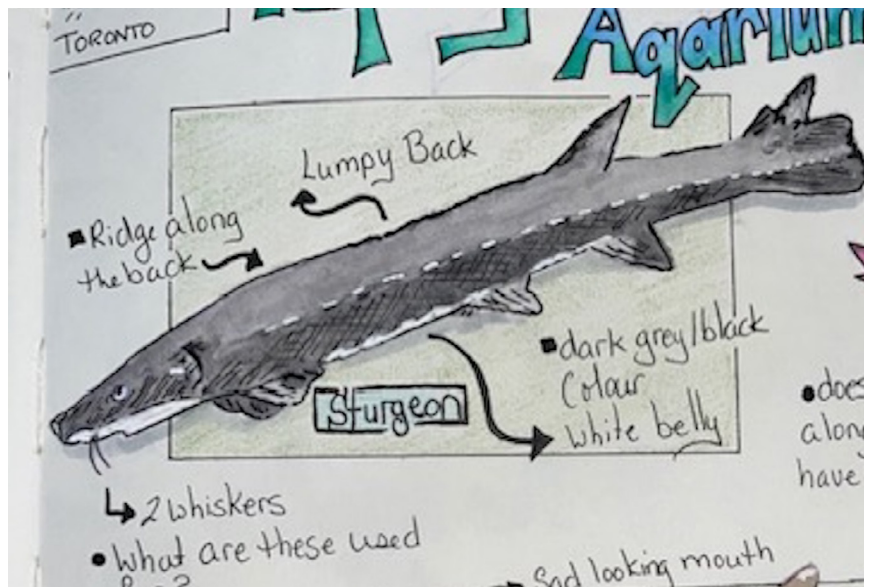 TORONTO
Aqarium
Lumpy Back
Ridge along
the back
dark grey/black
Colour
white belly
Sturgeon
does
along
have
2 whiskers
What are these used
Sad looking mouth